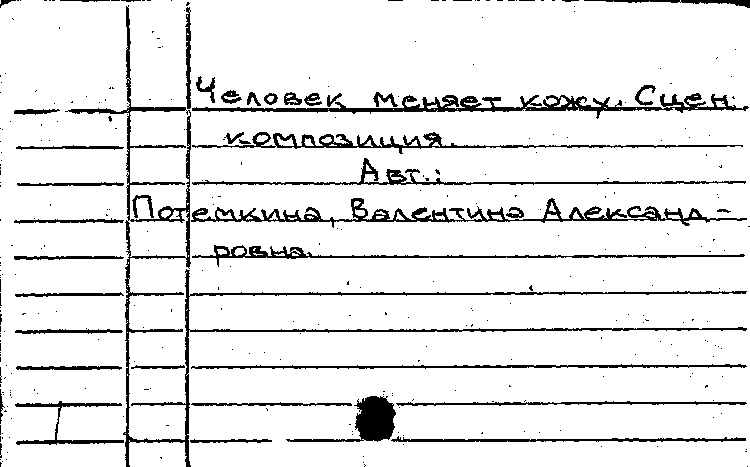 Человек меняет кожу. Сцен.
композиция.
Авт.:
Потемкина, Валентина Александ-
ровна.